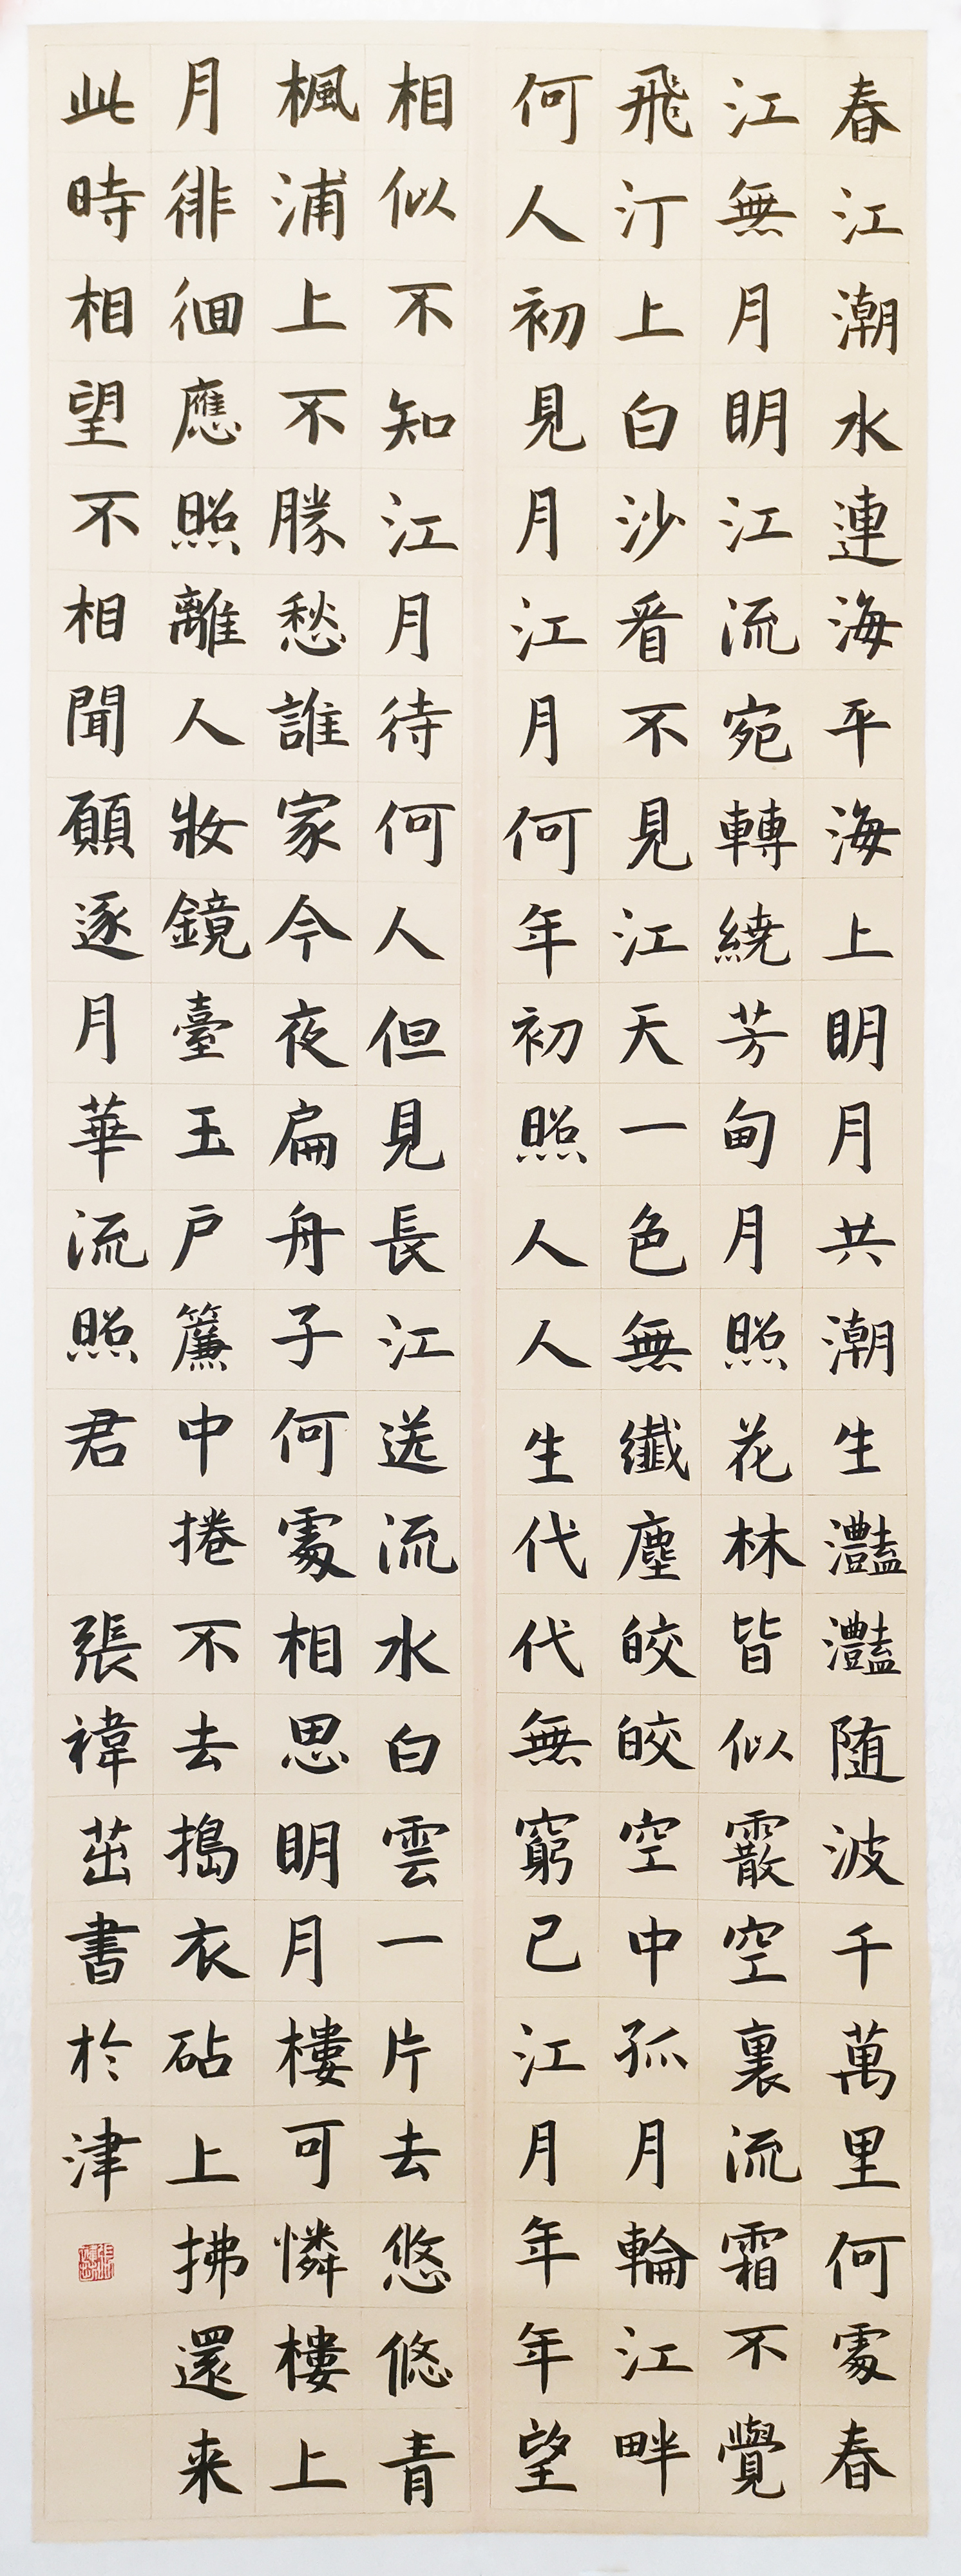 春江潮水連海平海上明月共潮生灩灩随波千萬里何處春
江無月明江流宛轉繞芳甸月照花林皆似霰空裏流霜不覺
飛汀上白沙看不見江天一色無纖塵皎皎空中孤月輪江畔
何人初見月江月何年初照人人生代代無窮已江月年年望
相似不知江月待何人但見長江送流水白雲一片去悠悠青
楓浦上不勝愁誰家今夜扁舟子何處相思明月樓可憐樓上
月徘徊應照離人妝鏡臺玉戶簾中捲不去搗衣砧上拂還来
此時相望不相聞願逐月華流照君 張禕茁書於津